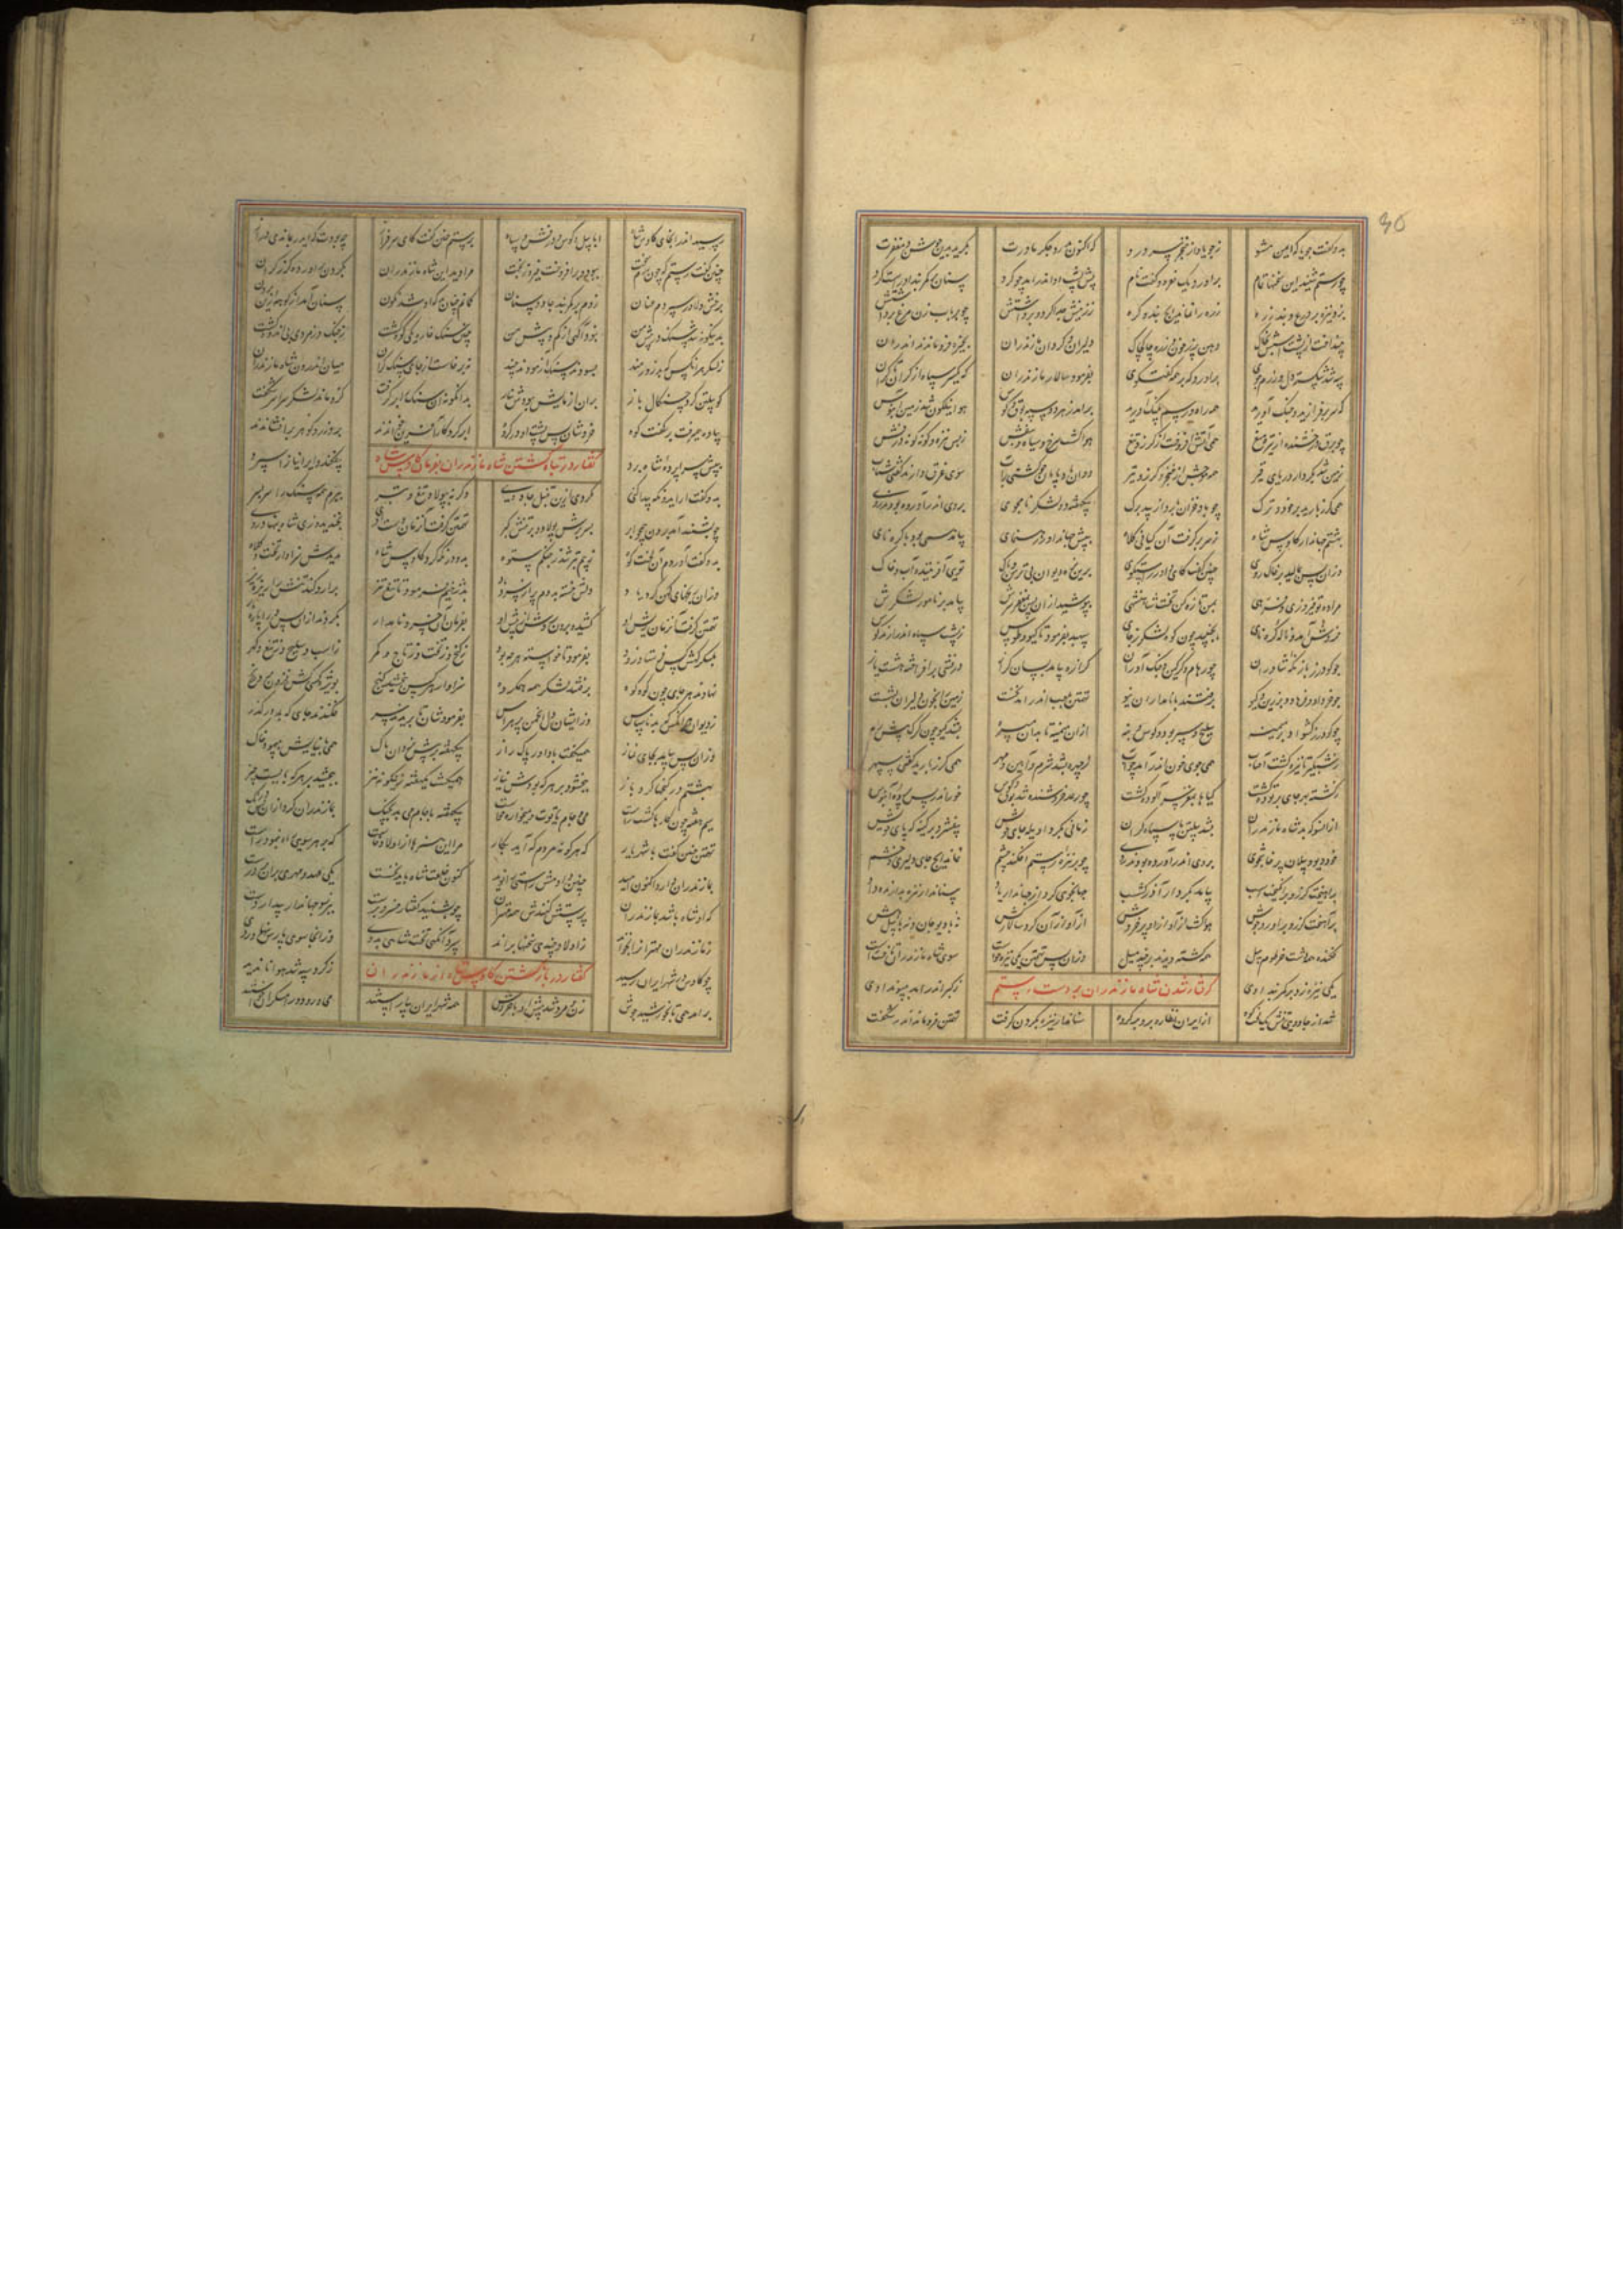 بدو گفت جویا که ایمن مشو ز جویا و از خنجر سر درو
که اکنون بدرد جگر مادرت بگرید بدین جوشن و مغفرت
چو رستم شنید این سخنها تمام برآورد یک نعره و گفت نام
پس پشت او اندر آمد چو گرد سنان بر کمربند او راست کرد
بزد نیزه بر درع و بند زره زره را نماند ایچ بند و گره
ز زینش جدا کرد و برداشتش چو بر بابزن مرغ برگاشتش
بینداخت از پشت اسبش بخاک دهن پر ز خون و زره چاک چاک
دلیران و گردان مازندران بخیره فرو ماندند اندران
سپه شد شکسته دل و زرد روی برآورد که بر همه گفت و گوی
بفرمود سالار مازندران که یکسر سپاه از کران تا کران
که سر برفرازید و جنگ آورید همه راه و رسم پلنگ آورید
برآمد ز هر دو سپه بوق و کوس هوا نیلگون شد زمین آبنوس
چو برق درخشنده از تیره میغ همی آتش افروخت از گرز و تیغ
هوا گشت سرخ و سیاه و بنفش ز بس نیزه و گونه گونه درفش
زمین شد بکردار دریای قیر همه موجش از خنجر و گرز و تیر
دوان بادپایان چو کشتی بر آب سوی غرق دارند گفتی شتاب
همی گرز بارید بر خود و ترگ چو باد خزان بارد از بید برگ
بیک هفته دو لشکر نامجوی بروی اندر آورده بودند روی
بهشتم جهاندار کاوس شاه ز سر برگرفت آن کیانی کلاه
به پیش جهاندار رهنمای بیامد همی بود با کره نای
وزان پس بمالید بر خاک روی چنین گفت کای داور راست گوی
برین نره دیوان بی ترس و باک توئی آفریننده آب و خاک
مرا ده تو فیروزی و فرهی بمن تازه کن تخت شاهنشهی
بپوشید از آن پس بمغفر سرش بیامد بر نامور لشکرش
خروش آمد و ناله کره نای بجنبید چون کوه لشکر ز جای
سپهبد بفرمود تا گیو و طوس ز پشت سپاه اندر آرند کوس
چو گودرز با زنگه شاوران چو رهام و گرگین جنگ آوران
گرازه بیامد بسان گراز درفشی برافراخته هشت باز
چو فرهاد و خراد و برزین و گیو برفتند با نامداران نیو
تهمتن بقلب اندر آمد نخست زمین را بخون دلیران بشست
چو گودرز کشواد بر میمنه سلیح و سپر برد و کوس و بنه
از آن میمنه تا بدان میسره بشد گیو چون گرگ پیش بره
ز شبگیر تا تیره گشت آفتاب همی جوی خون اندر آمد چو آب
ز چهره بشد شرم و آیین و مهر همی گرز بارید گفتی سپهر
ز کشته بهر جای بر توده گشت گیاها بمغز سر آلوده گشت
چو رعد خروشنده شد بوق و کوس خور اندر پس پرده آبنوس
از آنسو که بد شاه مازندران بشد پیلتن با سپاه گران
زمانی نکرد او یله جای خویش بیفشرد بر کینه گه پای خویش
خود دیو و پیلان پرخاشجوی بروی اندر آورده بودند روی
چو بر نیزه رستم افکند چشم نماند ایچ جای دلیری و خشم
برآهیخت گرز و برانگیخت اسب بیامد بکردار آذرگشسب
جهانجوی کرد از جهاندار یاد سنان دار نیزه بدارنده داد
برآهیخت گرز و برآورد جوش هوا گشت از آواز او پر خروش
از آواز آن گرد سالارکش نه با دیو جان و نه با پیل هش
فکنده همه دشت خرطوم پیل همه کشته دیدند بر چند میل
وزان پس تهمتن یکی نیزه خواست سوی شاه مازندران تاخت راست
گرفتار شدن شاه مازندران بر دست رستم
یکی نیزه زد بر کمربند اوی ز گبر اندر آمد بپیوند اوی
شد از جادویی تنش یک لخت کوه از ایران نظاره برو بر گروه
تهمتن فرو ماند اندر شگفت سناندار نیزه بگردن گرفت
رسید اندر آنجای کاوس شاه ابا پیل و کوس و درفش و سپاه
برستم چنین گفت کای سرفراز چه بودت که ایدر بماندی دراز
چنین گفت رستم که چون رزم سخت ببود و برافروخت فیروز بخت
مرا دید این شاه مازندران بگردن برآورده گرز گران
برخش دلاور سپردم عنان زدم بر کمربند جادو سنان
گمانم چنان بد که او شد نگون سنان آمد از کوهه زین برون
بدینگونه شد سنگ در پیش من نبود آگهی از کم و بیش من
چنین سنگ خارا یکی گوی گشت ز جنگ و ز مردی بی اندوه گشت
ز لشکر هر آنکس که بد زورمند بسودند سنگ آزمودند چند
نه برخاست از جای سنگ گران میان اندرون شاه مازندران
گو پیلتن کرد چنگال باز بران آزمایش نبودش نیاز
بدانگونه آن سنگ را برگرفت کزو ماند لشکر سراسر شگفت
پیاده همی رفت بر کتف کوه خروشان پس پشت او در گروه
ابر کردگار آفرین خواندند برو زر و گوهر برافشاندند
گفتار در تباه گشتن شاه مازندران بفرمان کاوس شاه
به پیش سراپرده شاه برد بیفکند و ایرانیان را سپرد
بدو گفت ار ایدونکه پیدا کنی گردی ازین تنبل جادویی
وگرنه بپولاد و تیغ و تبر ببرم همه سنگ را سر بسر
چو بشنید آمد برون همچو ابر بسر برش پولاد و بر تنش گبر
تهمتن گرفت آن زمان دست اوی بخندید و زی شاه بنهاد روی
بدو گفت آوردم آن لخت کوه ز بیم تبر شد ز چنگم ستوه
برو در نگه کرد کاوس شاه ندیدش سزاوار تخت و کلاه
وزان رنجهای کهن کرد یاد دلش خسته بد دم پر از سرد باد
بدژخیم فرمود تا تیغ تیز برآرد کند تنش را ریز ریز
تهمتن گرفت آن زمان ریش اوی کشیده برون شد از پیش اوی
بفرمان آن خسرو نامدار بکردند از آن پس ورا پاره پار
بلشکرگهش کس فرستاد زود بفرمود تا خواسته هر چه بود
ز گنج و ز تخت و ز تاج و کمر ز اسب و سلیح و ز تیغ و گهر
نهادند هر جای چون کوه کوه برفتند لشکر همه همگروه
سزاوار هر کس ببخشید گنج
ز دیوان هر آنکس که بد ناسپاس وز ایشان دل انجمن پر هراس
بفرمودشان تا بریدند سر فکندند جای که بد رهگذر
وزان پس بیامد بجای نماز همی گفت با داور پاک راز
بیک هفته بر پیش یزدان پاک همی با نیایش بپیمود خاک
بهشتم در گنجها کرد باز ببخشود بر هر که بودش نیاز
همی گشت یک هفته زین گونه نیز ببخشید بر هر که بایست چیز
سیم هفته چون کارها گشت راست می و جام یاقوت و میخواره خواست
بیک هفته با جام می بد بچنگ بمازندران کرد از آن پس درنگ
تهمتن چنین گفت با شهریار که هر گونه مردم که آید بکار
مرا این هنرها از اولاد خاست که بر هر سوی راه بنمود راست
بمازندران دارد اکنون امید چنین دادمش راستی را نوید
کنون خلعت شاه باید نخست یکی عهد و مهری بران بر درست
که او شاه باشد بمازندران پرستش کنندش همه مهتران
چو بشنید گفتار خسرو پرست
ز مازندران مهتران را بخواند ز اولاد چندی سخنها براند
سپرد آنگهی تخت شاهی بدوی وز آنجا سوی پارس بنهاد روی
گفتار در باز گشتن کاوس شاه از مازندران
چو کاوس در شهر ایران رسید ز گرد سپه شد هوا ناپدید
برآمد همی تا بخورشید جوش زن و مرد شد پیش او با خروش
همه شهر ایران بیاراستند می و رود و رامشگران خواستند